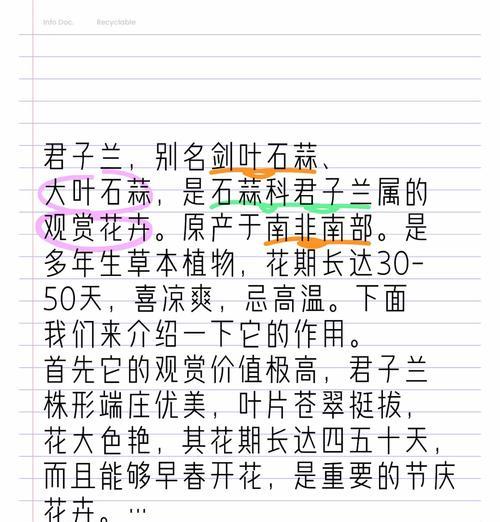 Info Doc. Recyclable
君子兰，别名剑叶石蒜、
大叶石蒜，是石蒜科君子兰属的
观赏花卉。原产于南非南部。是
多年生草本植物，花期长达30-
50天，喜凉爽，忌高温。下面
我们来介绍一下它的作用。
首先它的观赏价值极高，君子兰
株形端庄优美，叶片苍翠挺拔，
花大色艳，其花期长达四五十天，
而且能够早春开花，是重要的节庆
花卉。…